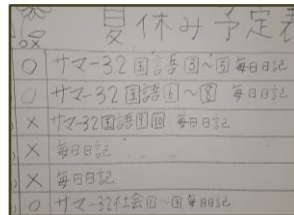 夏休み予定表
○ サマー32 国語 3~5 毎日日記
○ サマー32 国語 6~8 毎日日記
× サマー32 国語 9 10 毎日日記
× 毎日日記
× 毎日日記
○ サマー32 社会 毎日日記